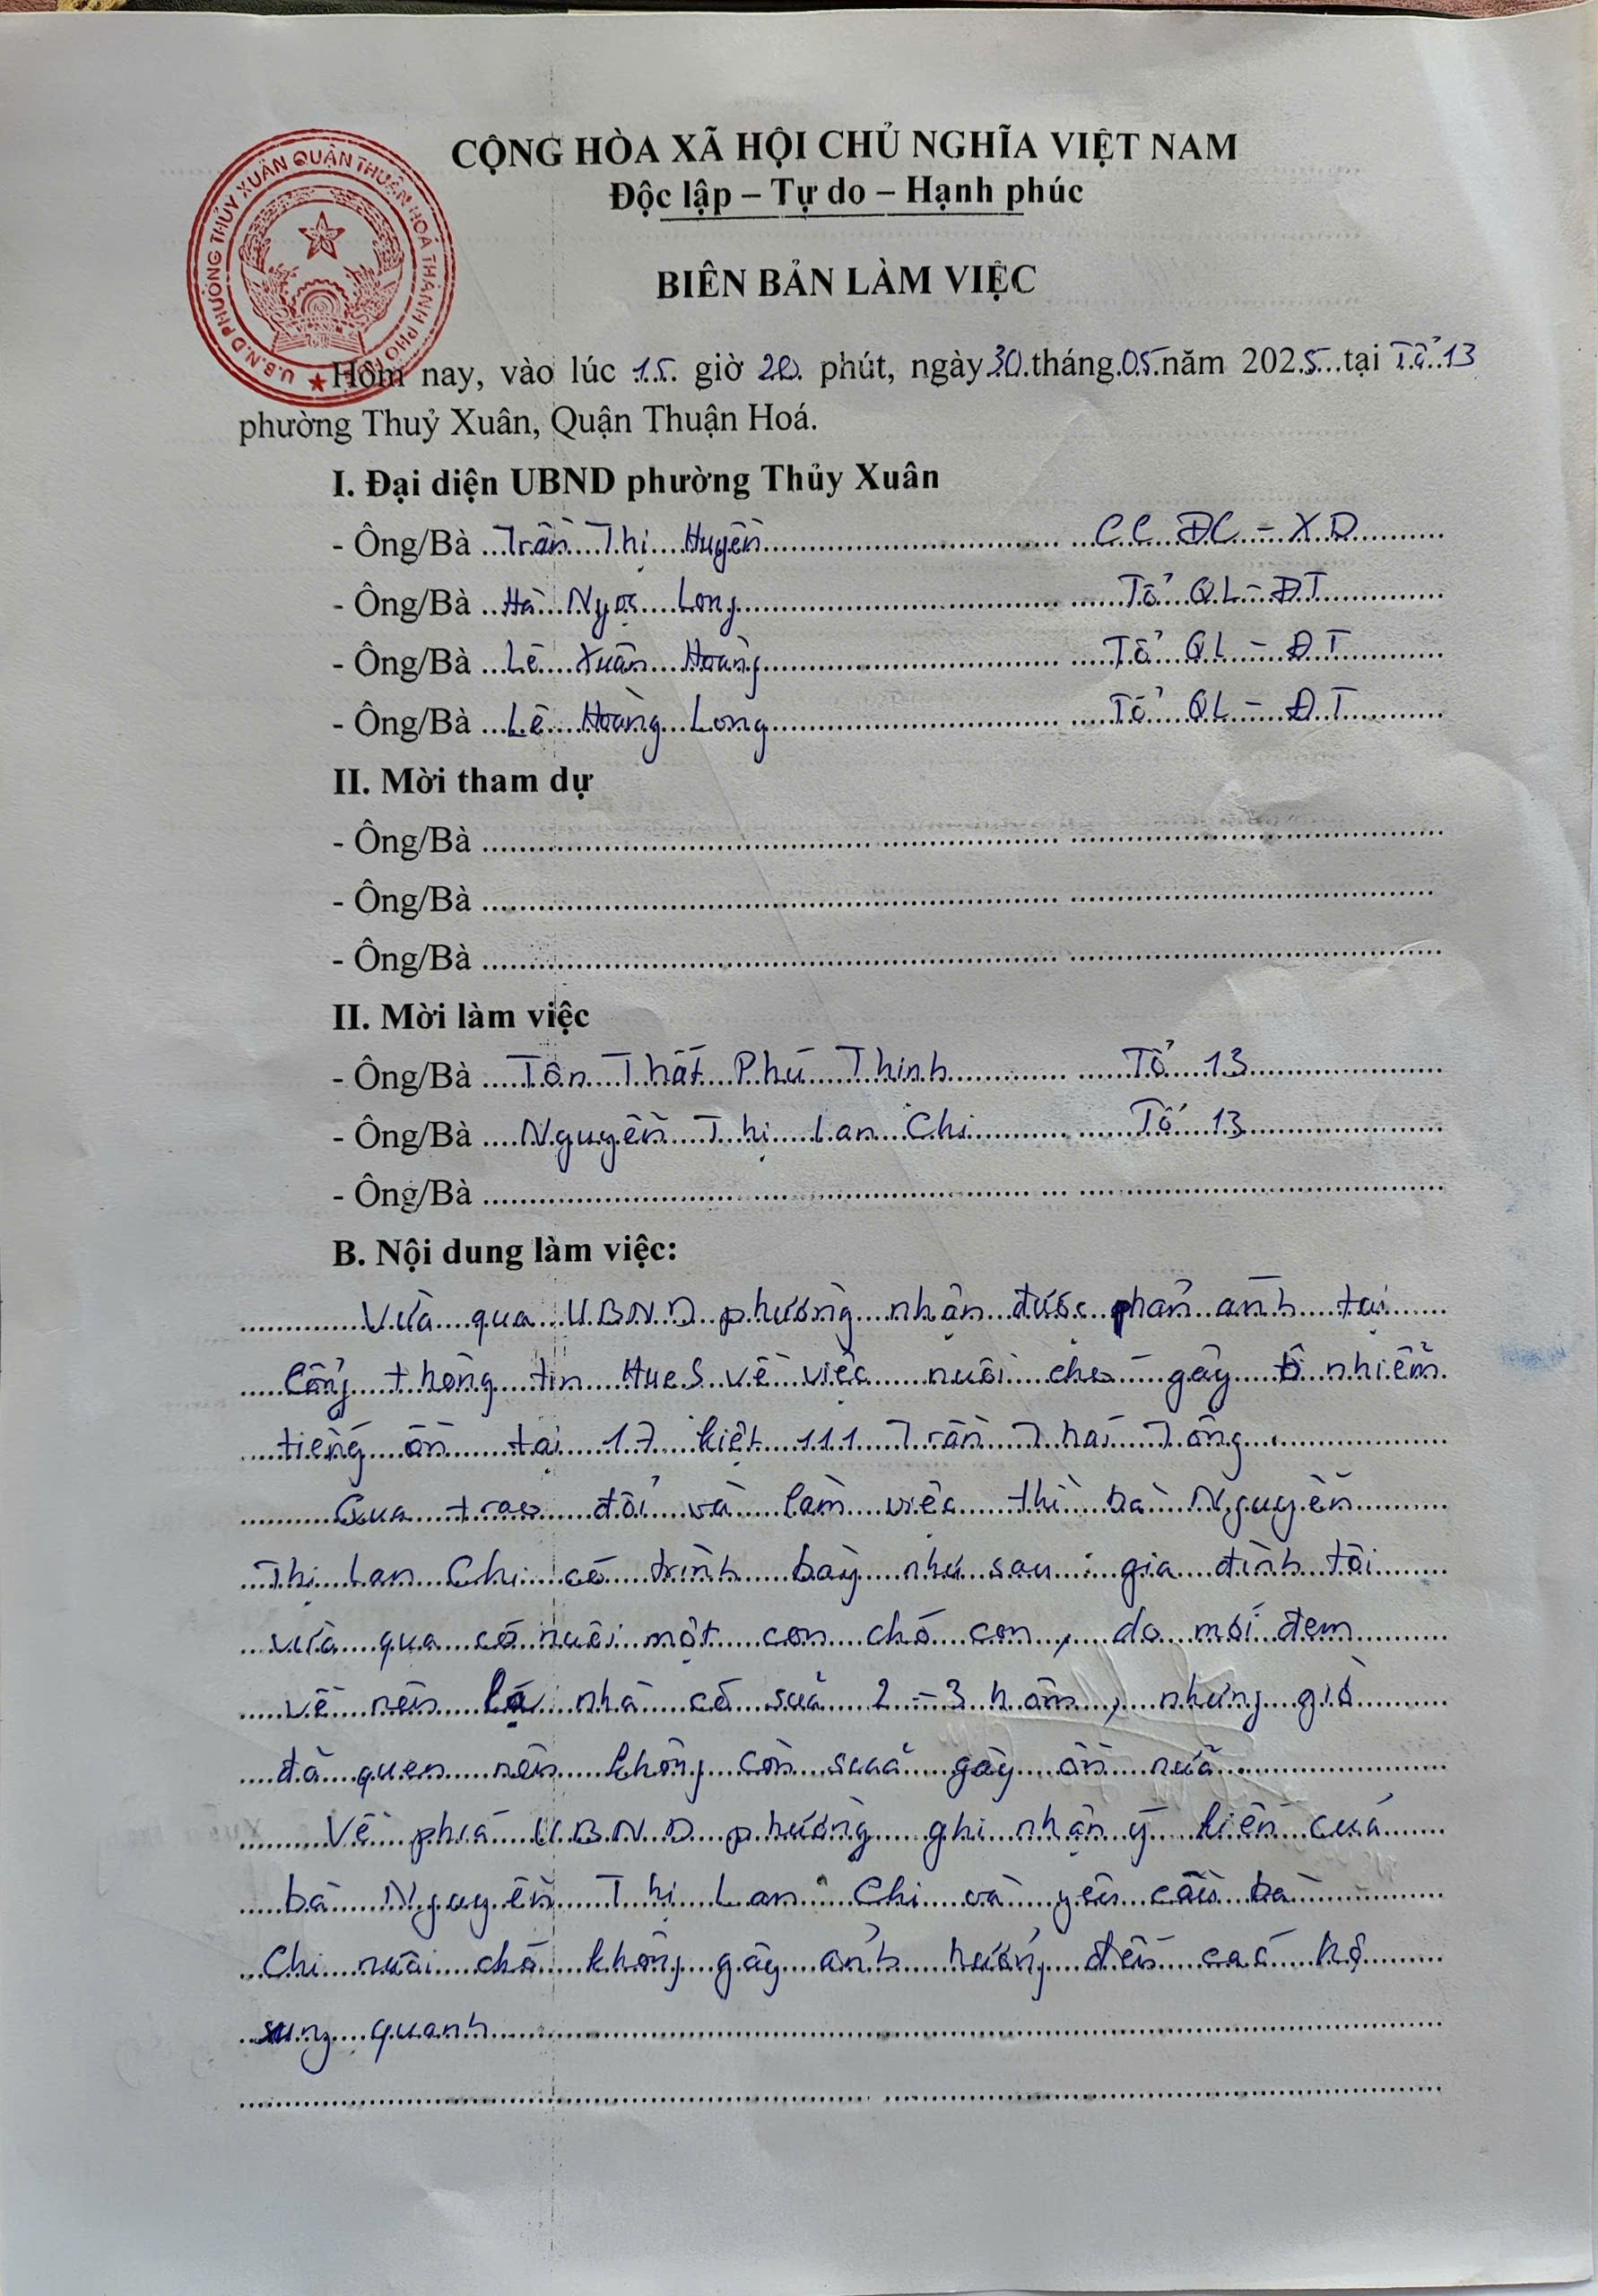 CỘNG HÒA XÃ HỘI CHỦ NGHĨA VIỆT NAM
Độc lập – Tự do – Hạnh phúc
U.B.N.D PHƯỜNG THỦY XUÂN QUẬN THUẬN HOÁ THÀNH PHỐ
BIÊN BẢN LÀM VIỆC
Hôm nay, vào lúc 15 giờ 20 phút, ngày 30 tháng 05 năm 2025 tại Tổ 13
phường Thuỷ Xuân, Quận Thuận Hoá.
I. Đại diện UBND phường Thủy Xuân
- Ông/Bà Trần Thị Huyền CC ĐC - XD
- Ông/Bà Hà Ngọc Long Tổ QL - ĐT
- Ông/Bà Lê Xuân Hoàng Tổ QL - ĐT
- Ông/Bà Lê Hoàng Long Tổ QL - ĐT
II. Mời tham dự
- Ông/Bà
- Ông/Bà
- Ông/Bà
II. Mời làm việc
- Ông/Bà Tôn Thất Phú Thinh Tổ 13
- Ông/Bà Nguyễn Thị Lan Chi Tổ 13
- Ông/Bà
B. Nội dung làm việc:
Vừa qua UBND phường nhận được phản ánh tại
Cổng thông tin HueS về việc nuôi chó gây ô nhiễm
tiếng ồn tại 17 kiệt 111 Trần Thái Tông.
Qua trao đổi và làm việc thì bà Nguyễn
Thị Lan Chi có trình bày như sau : gia đình tôi
vừa qua có nuôi một con chó con, do mới đem
về nên lạ nhà có sủa 2 - 3 hôm, nhưng giờ
đã quen nên không còn sủa gây ồn nữa
Về phía UBND phường ghi nhận ý kiến của
bà Nguyễn Thị Lan Chi và yêu cầu bà
Chi nuôi chó không gây ảnh hưởng đến các hộ
xung quanh